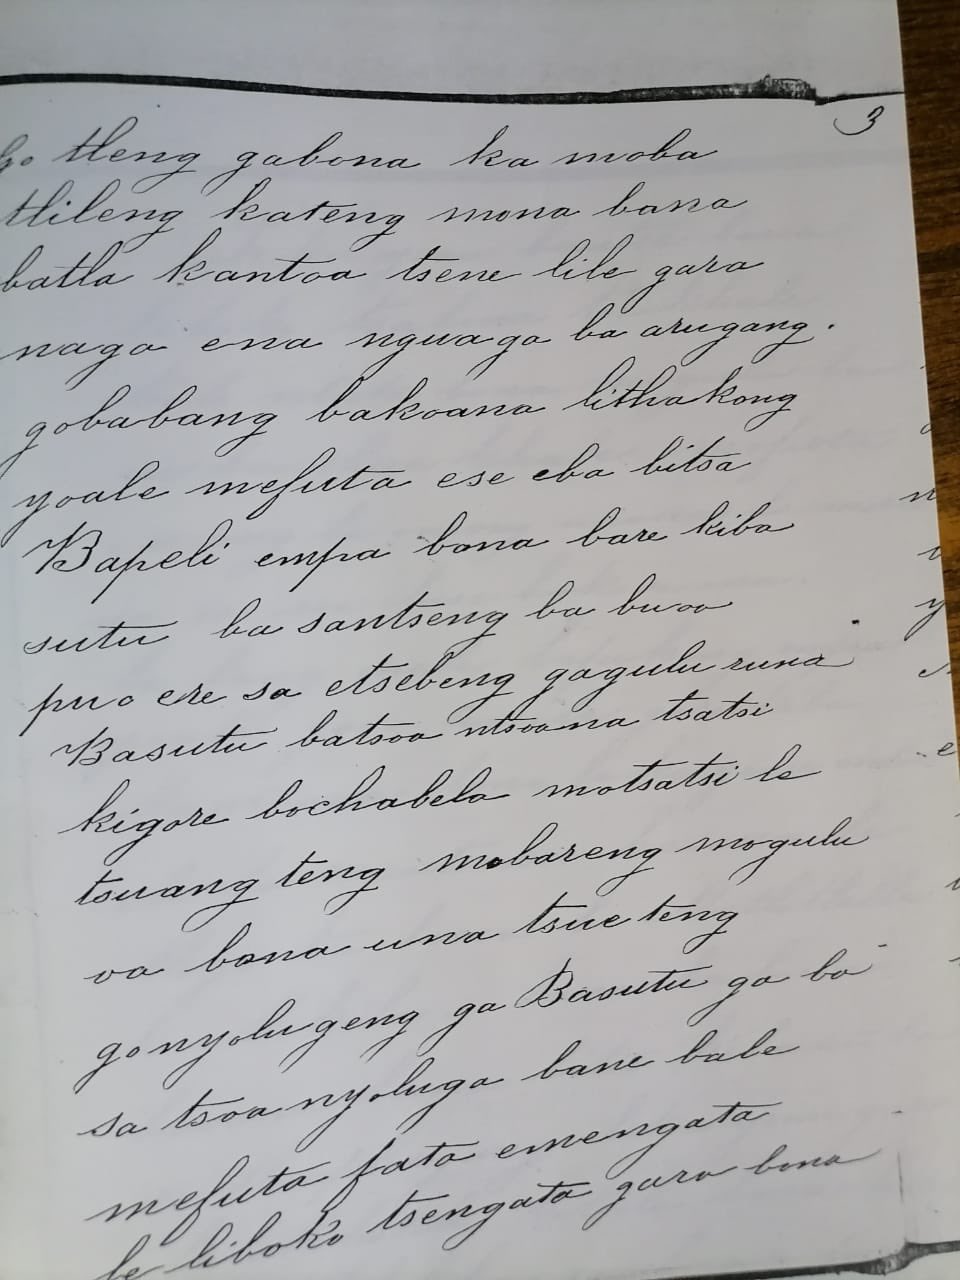 3
go tleng gabona ka moba
tlileng kateng mona bana
batla kantoa tsene lile gara
naga ena nguaga ba arugang.
gobabang bakoana lithakong
yoale mefuta ese eba bitsa
Bapeli empa bona bare kiba
sutu ba santseng ba buoa
puo ere sa etsebeng gagulu runa
Basutu batsoa ntsoana tsatsi
kigore bochabela motsatsi le
tsuang teng mobareng mogulu
oa bona una tsue teng
gonyolugeng ga Basutu ga ba
sa tsoa nyoluga bane bale
mefuta fata emengata
le liboko tsengata gara bona